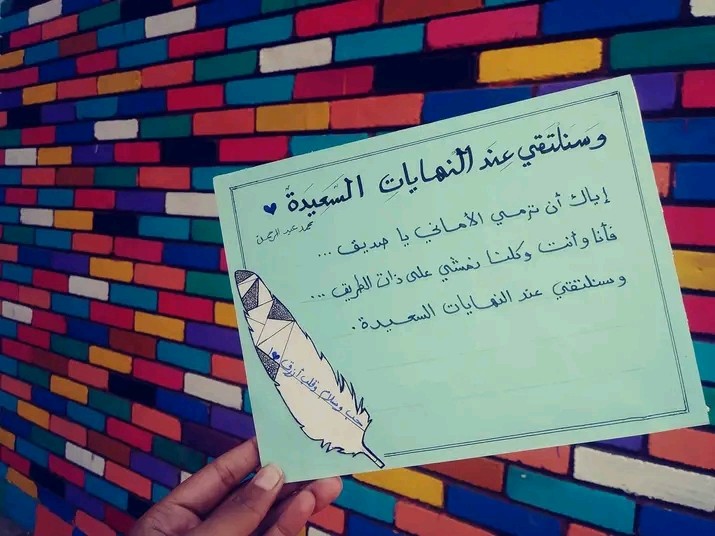 وَسَنلتقي عِندَ النهاياتِ السَّعِيدَةُ
محمد عبد الرحمن
إياك أن ترمي الأماني يا صديق ...
فأنا وأنت وكلنا نمشي على ذات الطريق ...
وسنلتقي عند النهايات السعيدة .
حب وسلام وقلب أزرق